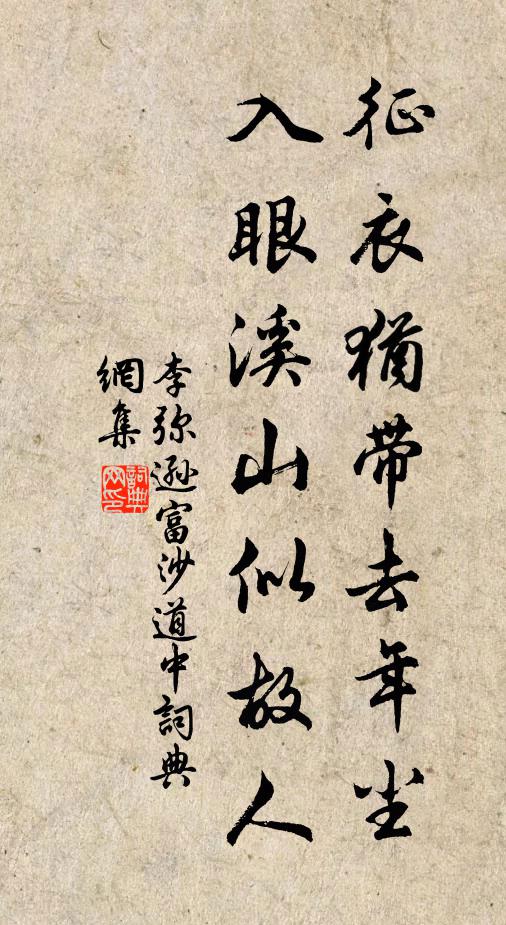 征衣猶帶去年尘
入眼溪山似故人
李弥遜富沙道中詞典
網集
詞典
网印